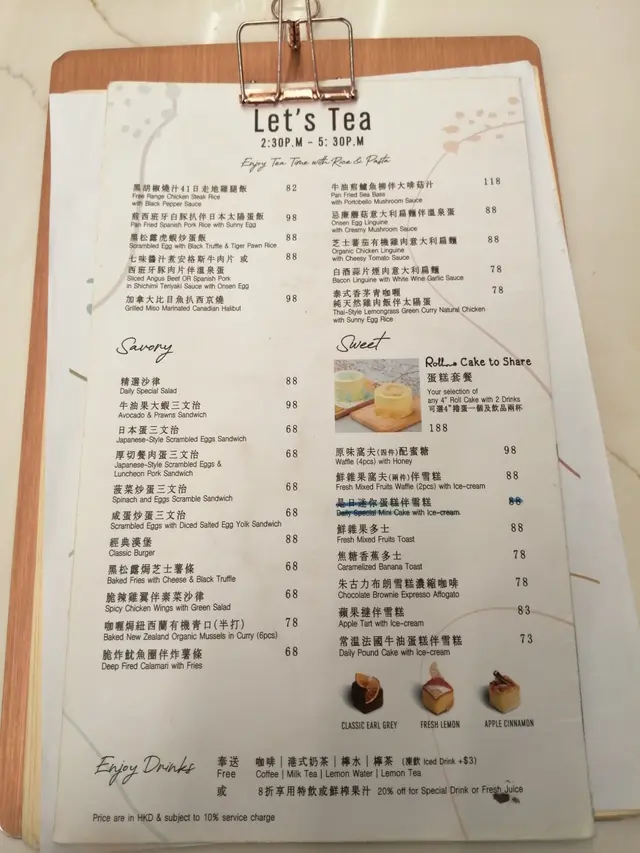 Let's Tea
2:30P.M - 5: 30P.M
Enjoy Tea Time with Rice & Pasta
黑胡椒燒汁41日走地雞腿飯 82
Free Range Chicken Steak Rice
with Black Pepper Sauce
煎西班牙白豚扒伴日本太陽蛋飯 98
Pan Fried Spanish Pork Rice with Sunny Egg
黑松露虎蝦炒蛋飯 88
Scrambled Egg with Black Truffle & Tiger Pawn Rice
七味醬汁煮安格斯牛肉片 或 88
西班牙豚肉片伴溫泉蛋
Sliced Angus Beef OR Spanish Pork
in Shichimi Teriyaki Sauce with Onsen Egg
加拿大比目魚扒西京燒 98
Grilled Miso Marinated Canadian Halibut
牛油煎鱸魚柳伴大啡菇汁 118
Pan Fried Sea Bass
with Portobello Mushroom Sauce
忌廉蘑菇意大利扁麵伴溫泉蛋 88
Onsen Egg Linguine
with Creamy Mushroom Sauce
芝士蕃茄有機雞肉意大利扁麵 88
Organic Chicken Linguine
with Cheesy Tomato Sauce
白酒蒜片煙肉意大利扁麵 78
Bacon Linguine with White Wine Garlic Sauce
泰式香茅青咖喱 78
純天然雞肉飯伴太陽蛋
Thai-Style Lemongrass Green Curry Natural Chicken
with Sunny Egg Rice
Savory
精選沙律 88
Daily Special Salad
牛油果大蝦三文治 98
Avocado & Prawns Sandwich
日本蛋三文治 68
Japanese-Style Scrambled Eggs Sandwich
厚切餐肉蛋三文治 68
Japanese-Style Scrambled Eggs &
Luncheon Pork Sandwich
菠菜炒蛋三文治 68
Spinach and Eggs Scramble Sandwich
咸蛋炒蛋三文治 68
Scrambled Eggs with Diced Salted Egg Yolk Sandwich
經典漢堡 88
Classic Burger
黑松露焗芝士薯條 68
Baked Fries with Cheese & Black Truffle
脆辣雞翼伴素菜沙律 68
Spicy Chicken Wings with Green Salad
咖喱焗紐西蘭有機青口(半打) 78
Baked New Zealand Organic Mussels in Curry (6pcs)
脆炸魷魚圈伴炸薯條 68
Deep Fired Calamari with Fries
Sweet
Cake to Share
蛋糕套餐
Your selection of
any 4" Roll Cake with 2 Drinks
可選4"捲蛋一個及飲品兩杯
188
原味窩夫(四件)配蜜糖 98
Waffle (4pcs) with Honey
鮮雜果窩夫(兩件)伴雪糕 88
Fresh Mixed Fruits Waffle (2pcs) with Ice-cream
是日迷你蛋糕伴雪糕 88
Daily Special Mini Cake with Ice-cream
鮮雜果多士 88
Fresh Mixed Fruits Toast
焦糖香蕉多士 78
Caramelized Banana Toast
朱古力布朗雪糕濃縮咖啡 78
Chocolate Brownie Expresso Affogato
蘋果撻伴雪糕 83
Apple Tart with Ice-cream
常溫法國牛油蛋糕伴雪糕 73
Daily Pound Cake with Ice-cream
CLASSIC EARL GREY FRESH LEMON APPLE CINNAMON
Enjoy Drinks
奉送 咖啡 | 港式奶茶 | 檸水 | 檸茶 (凍飲 Iced Drink +$3)
Free Coffee | Milk Tea | Lemon Water | Lemon Tea
或 8折享用特飲或鮮榨果汁 20% off for Special Drink or Fresh Juice
Price are in HKD & subject to 10% service charge